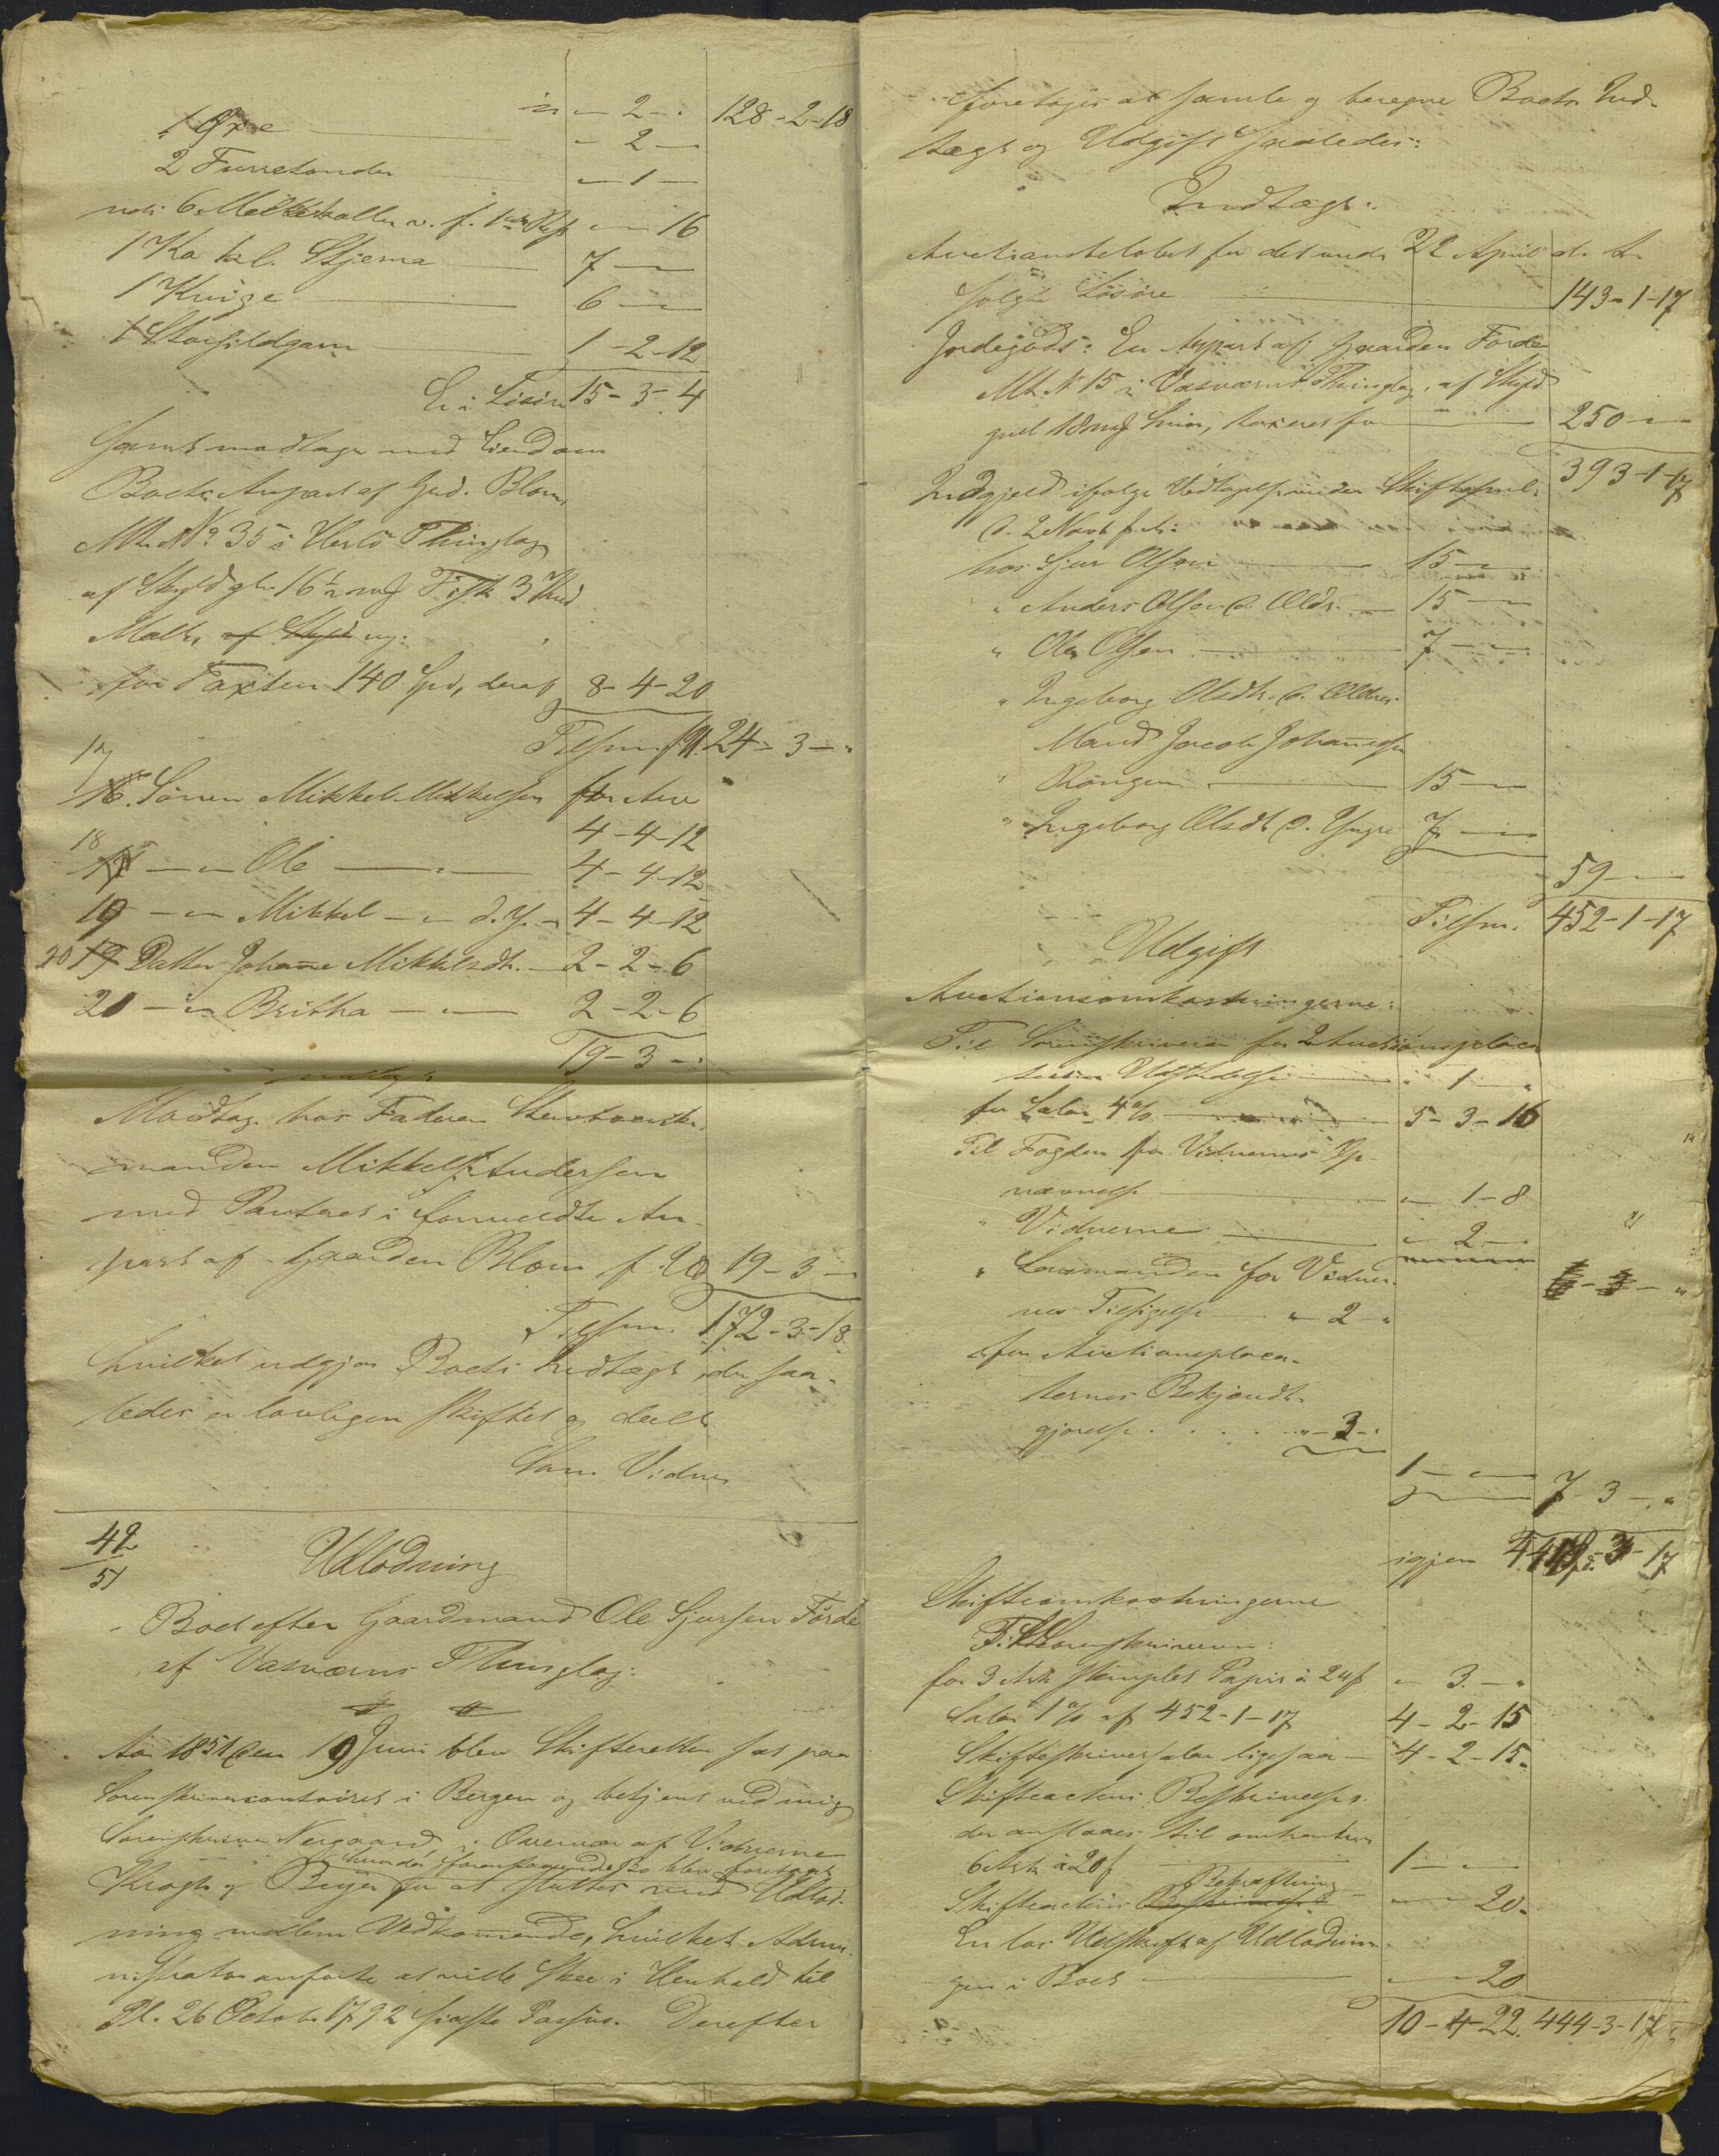 " - 2 - " 128-2-18
1 Øxe - 2 -
2 Furretønder - 1 -
6 Melkekoller 16
1 Ko kal. Stjerna 7 -
1 Kvige 6 -
1 Storsildgarn 1-2-12
Er i Løsøre 15-3-4
samt modtager med Eiendom
Boets Anpart af Grd. Blom,
Mt. No 35 i Herlø Thinglag
af Skyld gl. 16½ mk Fisk 3 Kud
Malt, af Skyld ny:
for Taxten 140 Spd, deraf 8-4-20
Tilsm. 24-3-"
17
16. Sønnen Mikkel Mikkelsen for Arv
4-4-12
18
17 - " Ole - " - 4-4-12
19 - " Mikkel - " d. Y. - 4-4-12
20 19 Datter Johanne Mikkelsdtr. - 2-2-6
21 - " Britha - " - 2-2-6
19-3-"
Modtag. hos Faderen
manden Mikkel Andersen
med Panteret i formeldte An-
part af Gaarden Blom 19-3-"
Tilsm. 172-3-18
hvilket udgjør Boets Indtægt, der saa-
ledes er lovligen skiftet og deelt.
Som Vidner
42
51
Udlodning
i Boet efter Gaardmand Ole Sjursen Førde
af Vasværns Thinglag:
Aar 1851 den 19 Juni blev Skifteretten sat paa
Sorenskrivercontoiret i Bergen og betjent ved mig
Sorenskriver Nergaard i Overvær af Vidnerne
hvorda forestaaende Bo blev foretaget
Krogh og Beyer for at sluttes med Udlod-
ning mellem Vedkommende, hvilket Admi-
nistrator anførte at ville skee i Henhold til
Pl. 26 Octob. 1792 sidste Passus. Derefter
foretoges at samle og beregne Boets Ind-
tægt og Udgift saaledes:
Indtægt:
Auctionsbeløbet for det under 22 April d. A.
solgte Løsøre 143-1-17
Jordegods: En Anpart af Gaarden Førde
Mt. N 15 i Vasværns Thinglag, af Skyld
Smør, taxeret for 250 -
393-1-17
Indgjeld ifølge Vedtagelse under Skiftesaml.
d. 2 Novb f. A:
hos Sjur Olsen 15 -
" Anders Olsen d. Ældr. 15 -
" Ole Olsen 7 -
" Ingeborg Olsdtr. d. Ældres
Mand Jacob Johannessen
Rongen 15 -
" Ingeborg Olsdt d. Yngre 7 -
59 -
Tilsm. 452-1-17
Udgift
Auctionsomkostningerne:
Til Sorenskriveren for 2 Auctionsplaca
ters Udstædelse " 1 - "
for Salær 4 % 5-3-16
Til Fogden for Vidnernes Op-
nævnelse " 1-8
" Vidnerne " 2 -
" Lensmanden for Vidner-
nes Tilsigelse " 2 "
for Auctionsplaca-
ternes Bekjendt-
gjørelse . . . . " 3 "
1 - " -
7-3-"
igjen 444-3-17
Skifteomkostningerne
Til Sorenskriveren:
for 3 Ark stemplet Papir à 24 s " 3. - "
Salær 1 % af 452-1-17 4-2-15
Skifteskriversalær ligesaa 4-2-15
Skifteactens Beskrivelse
der anslaaes til omtrentlig
6 Ark à 20 s 1 - " -
Bekræftning
Skifteactens Beskrivelse " - 20 -
En løs Udskrift af Udlodnin
gen i Boet " - 20
10-4-22. 444-3-17